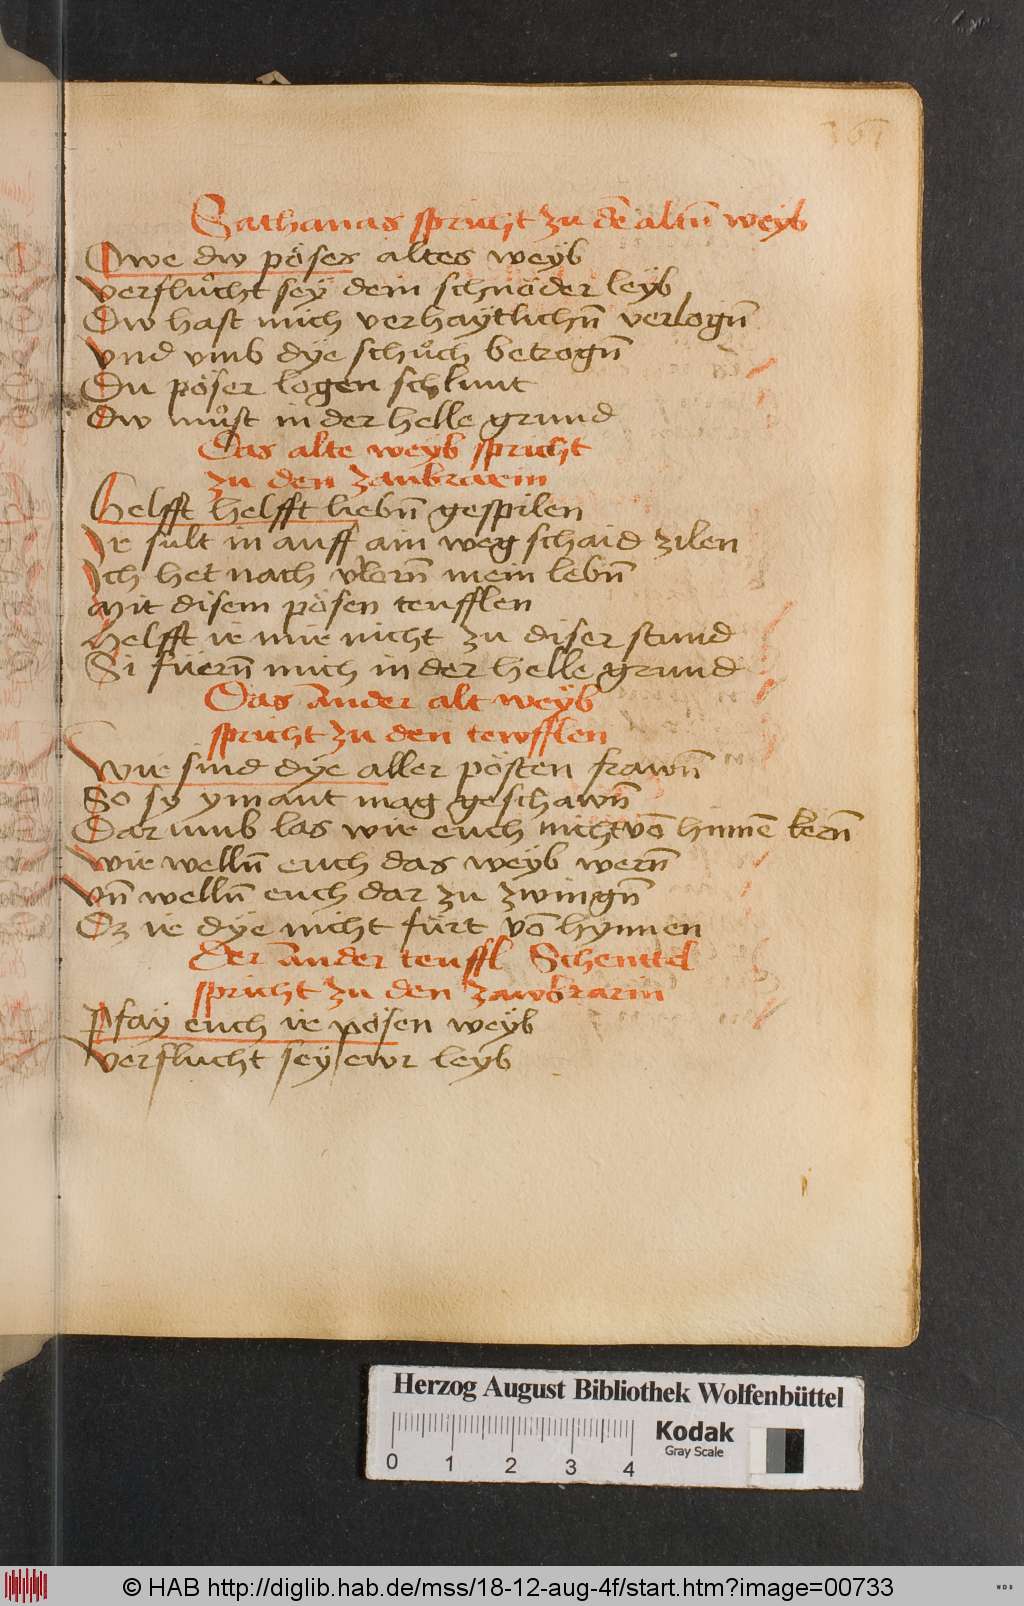 367
Sathanas spricht zu dē altn̄ weyb
Owe dw pöses altes weyb
verflůcht seÿ dein schnöder leyb
Dw hast mich verhaÿtlichn̄ verlogn̄
vnd vmb dÿe schůch betrogn̄
Du pöser logen schlunt
Dw můst in der helle grund
Das alte weyb spricht
zu den zaubrarin
Helfft helfft liebn̄ gespilen
Ir sült in auff ain weg schaid zilen
Ich het nach vlorn̄ mein lebn̄
Mit disem pösen teufflen
Helfft ir mir nicht zu diser stund
Si füern̄ mich in der helle grund
Das ander alt weÿb
spricht zu den tewfflen
Wir sind dÿe aller pösten frawn̄
So sy ymant mag geschawn̄
Dar umb las wir euch nicht vō hinnē kern̄
Wir welln̄ euch das weyb wern̄
Vn̄ welln̄ euch dar zu zwingn̄
Dz ir dÿe nicht fürt vō hynnen
Der ander teuffl Schenttel
spricht zu den zawbrarin
Pfaÿ euch ir pösen weyb
Verflucht seÿ ewr leyb
Herzog August Bibliothek Wolfenbüttel
0 1 2 3 4
Kodak
Gray Scale
© HAB http://diglib.hab.de/mss/18-12-aug-4f/start.htm?image=00733